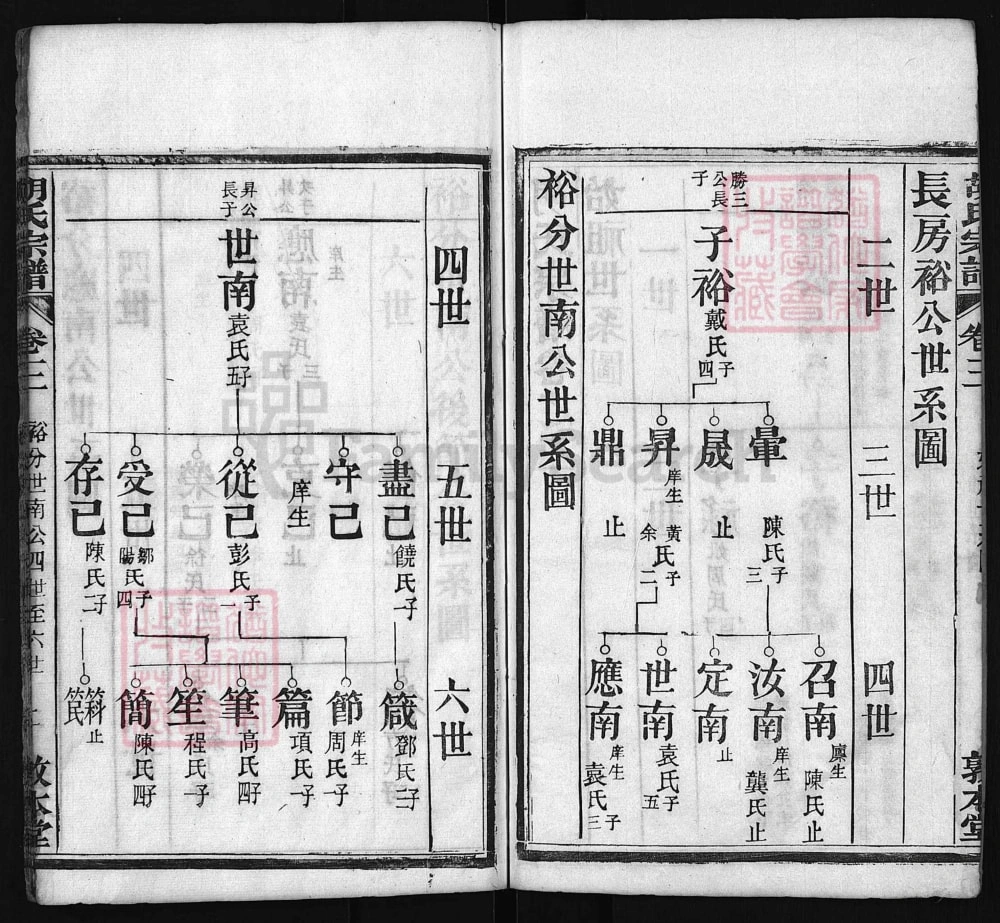 長房裕公世系圖
二世
三世
四世
勝三公長子
子裕
戴氏四子
暈
陳氏三子
晟
止
昇
庠生
黃氏余二子
鼎
止
召南
廩生
陳氏止
汝南
庠生
龔氏止
定南
止
世南
庠生
袁氏五子
應南
庠生
袁氏三子
裕分世南公世系圖
四世
五世
六世
昇公長子
世南
袁氏五子
盡己
饒氏一子
守己
庠生
從己
彭氏一子
受己
歐陽鄒氏四子
存己
陳氏二子
箴
鄧氏二子
節
庠生
周氏一子
篇
項氏一子
筆
高氏四子
笙
程氏一子
簡
陳氏四子
筸
止
胡氏宗譜
卷三
裕分世南公四世至六世
敦本堂
FamilySearch